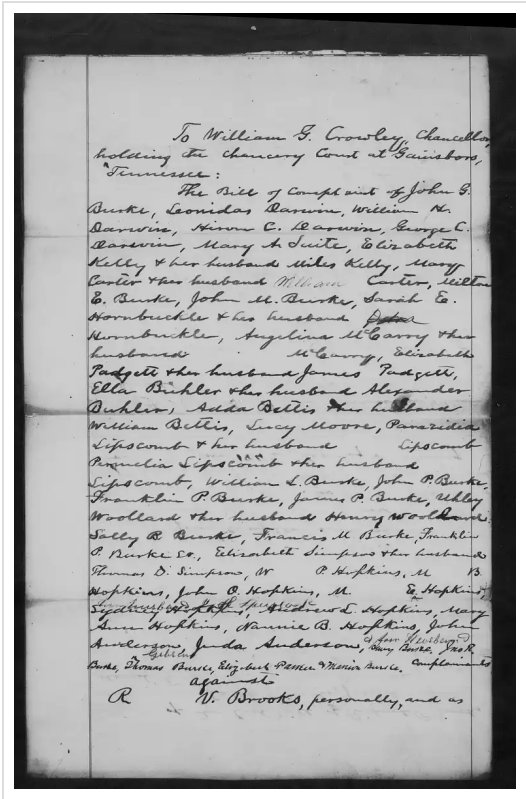 To William G. Crowley, Chancellor,
holding the Chancery Court at Gainsboro,
Tennessee:
The Bill of Complaint of John G.
Burke, Leonidas Darwin, William H.
Darwin, Hiron C. Darwin, George C.
Darwin, Mary A Suite, Elizabeth
Kelly & her husband Miles Kelly, Mary
Carter & her husband William Carter, Milton
E. Burke, John M. Burke, Sarah E.
Hornbuckle & her husband
Hornbuckle, Angelina McCarry & her
husband McCarry, Elizabeth
Padgett & her husband James Padgett,
Ella Buhler & her husband Alexander
Buhler, Adda Bettis & her husband
William Bettis, Lucy Moore, Parazidia
Lipscomb & her husband Lipscomb
Permelia Lipscomb & her husband
Lipscomb, William L. Burke, John P. Burke,
Franklin P. Burke, James P. Burke, Uhley
Woollard & her husband Henry Woollard,
Sally B Burke, Francis M Burke, Franklin
P. Burke Sr., Elizabeth Simpson & her husband
Thomas D. Simpson, W P. Hopkins, M B
Hopkins, John O. Hopkins, M. E. Hopkins,
Hopkins, Andrew L. Hopkins, Mary
Ann Hopkins, Nannie B. Hopkins, John
& four Husband
Anderson, Juda Anderson, Burke, Jno R.
Burke, Thomas Burke, Elizabeth & Burke. Complainants
against
R V. Brooks, personally, and as